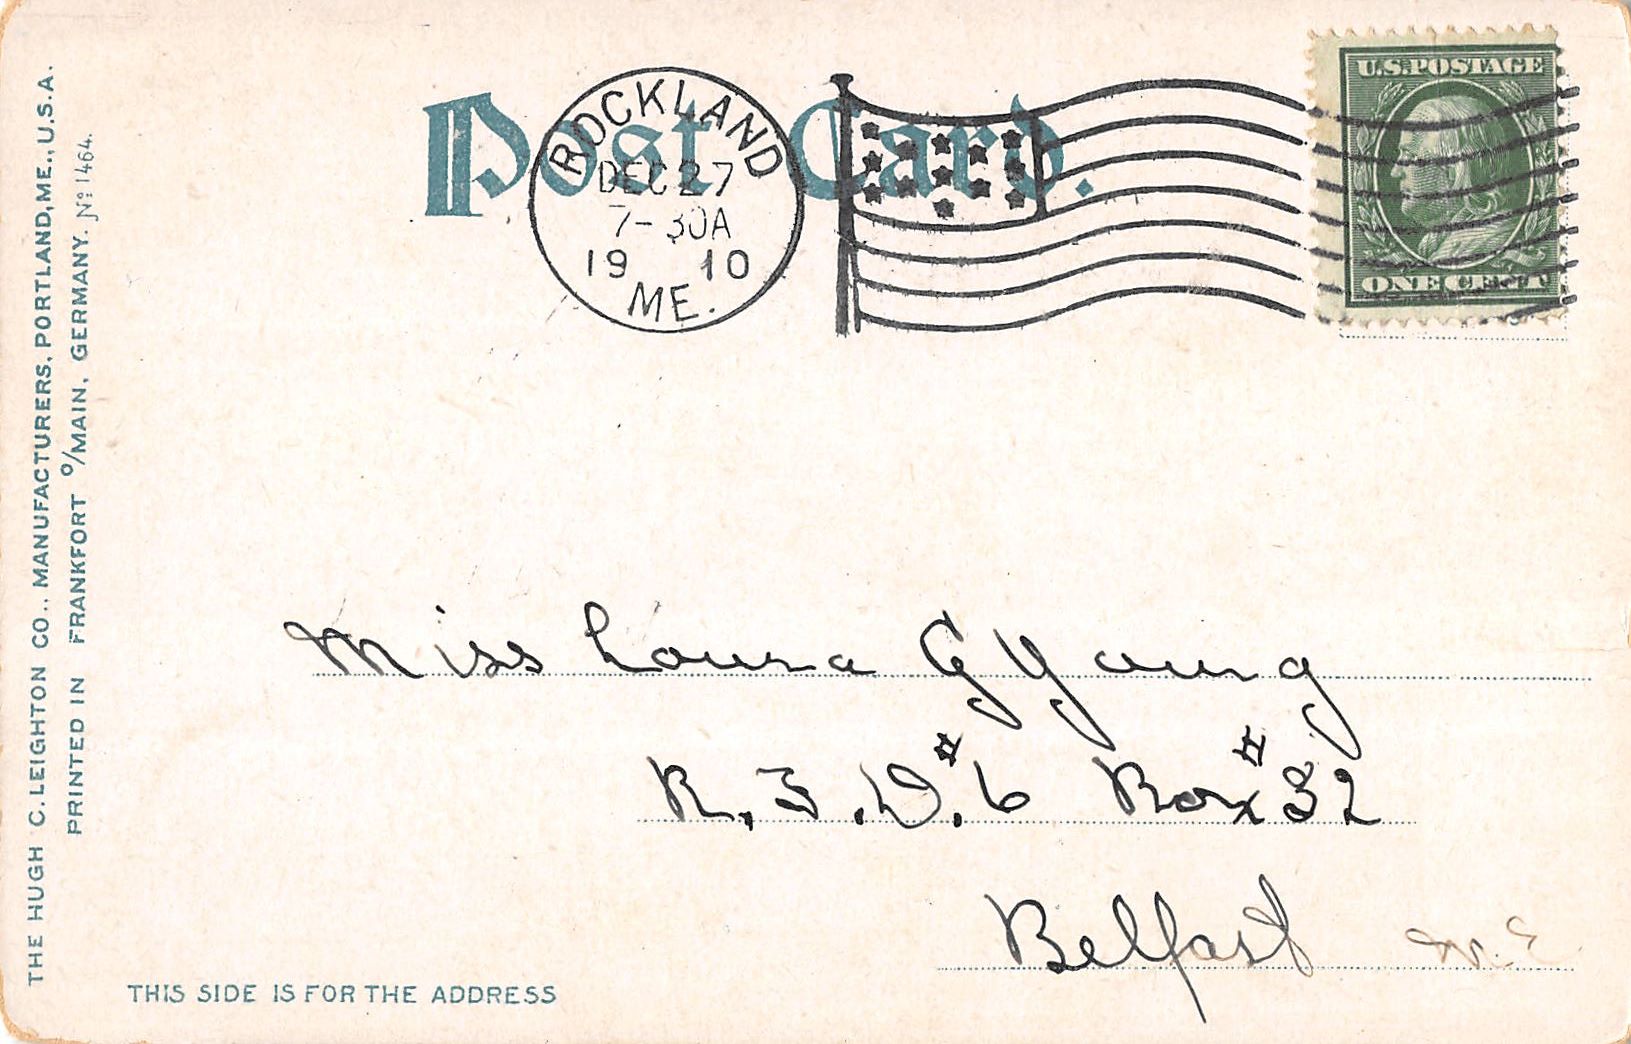 Post Card.
ROCKLAND
DEC 27
7-30A
19 10
ME.
U.S. POSTAGE
ONE CENT
Miss Louisa G Young
R.F.D. #6 Box #32
Belfast M.E
THE HUGH C. LEIGHTON CO., MANUFACTURERS, PORTLAND, ME., U.S.A.
PRINTED IN FRANKFORT O/MAIN, GERMANY. No 1464.
THIS SIDE IS FOR THE ADDRESS